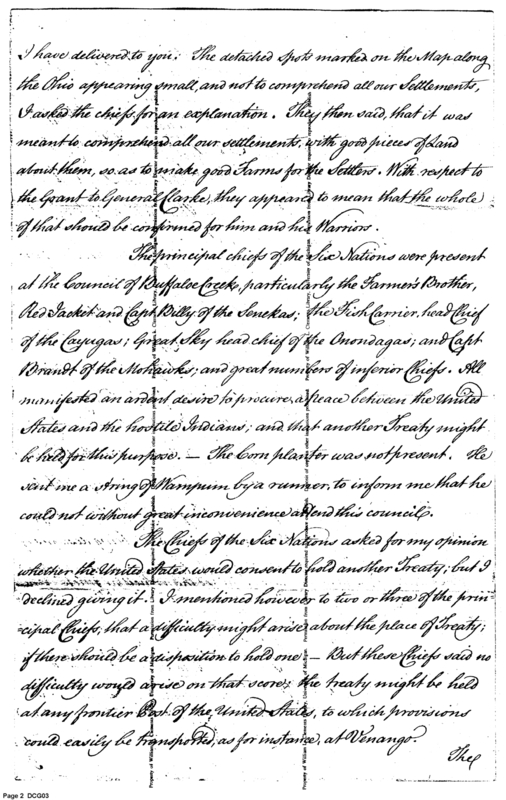 I have delivered to you: The detached spots marked on the Map along
the Ohio appearing small, and not to comprehend all our Settlements,
I asked the chiefs for an explanation. They then said, that it was
meant to comprehend all our settlements, with good pieces of Land
about them, so as to make good Farms for the Settlers. With respect to
the Grant to General Clarke, they appeared to mean that the whole
of that should be confirmed for him and his Warriors.
The principal chiefs of the Six Nations were present
at the Council of Buffaloe Creek, particularly the Farmer's Brother,
Red Jacket and Capt Billy of the Senekas; the Fish Carrier, head Chief
of the Cayugas; Great Sky head chief of the Onondagas; and Capt
Brandt of the Mohawks; and great numbers of inferior Chiefs. All
manifested an ardent desire to procure a peace between the United
States and the hostile Indians; and that another Treaty might
be held for this purpose. — The Corn planter was not present. He
sent me a string of Wampum by a runner, to inform me that he
could not without great inconvenience attend this council.
The Chiefs of the Six Nations asked for my opinion
whether the United States would consent to hold another Treaty; but I
declined giving it. I mentioned however to two or three of the prin-
cipal Chiefs, that a difficulty might arise about the place of Treaty;
if there should be a disposition to hold one — But these Chiefs said no
difficulty would arise on that score; the treaty might be held
at any frontier Post of the United States, to which provisions
could easily be transported, as for instance, at Venango.
The
Page 2 DCG03